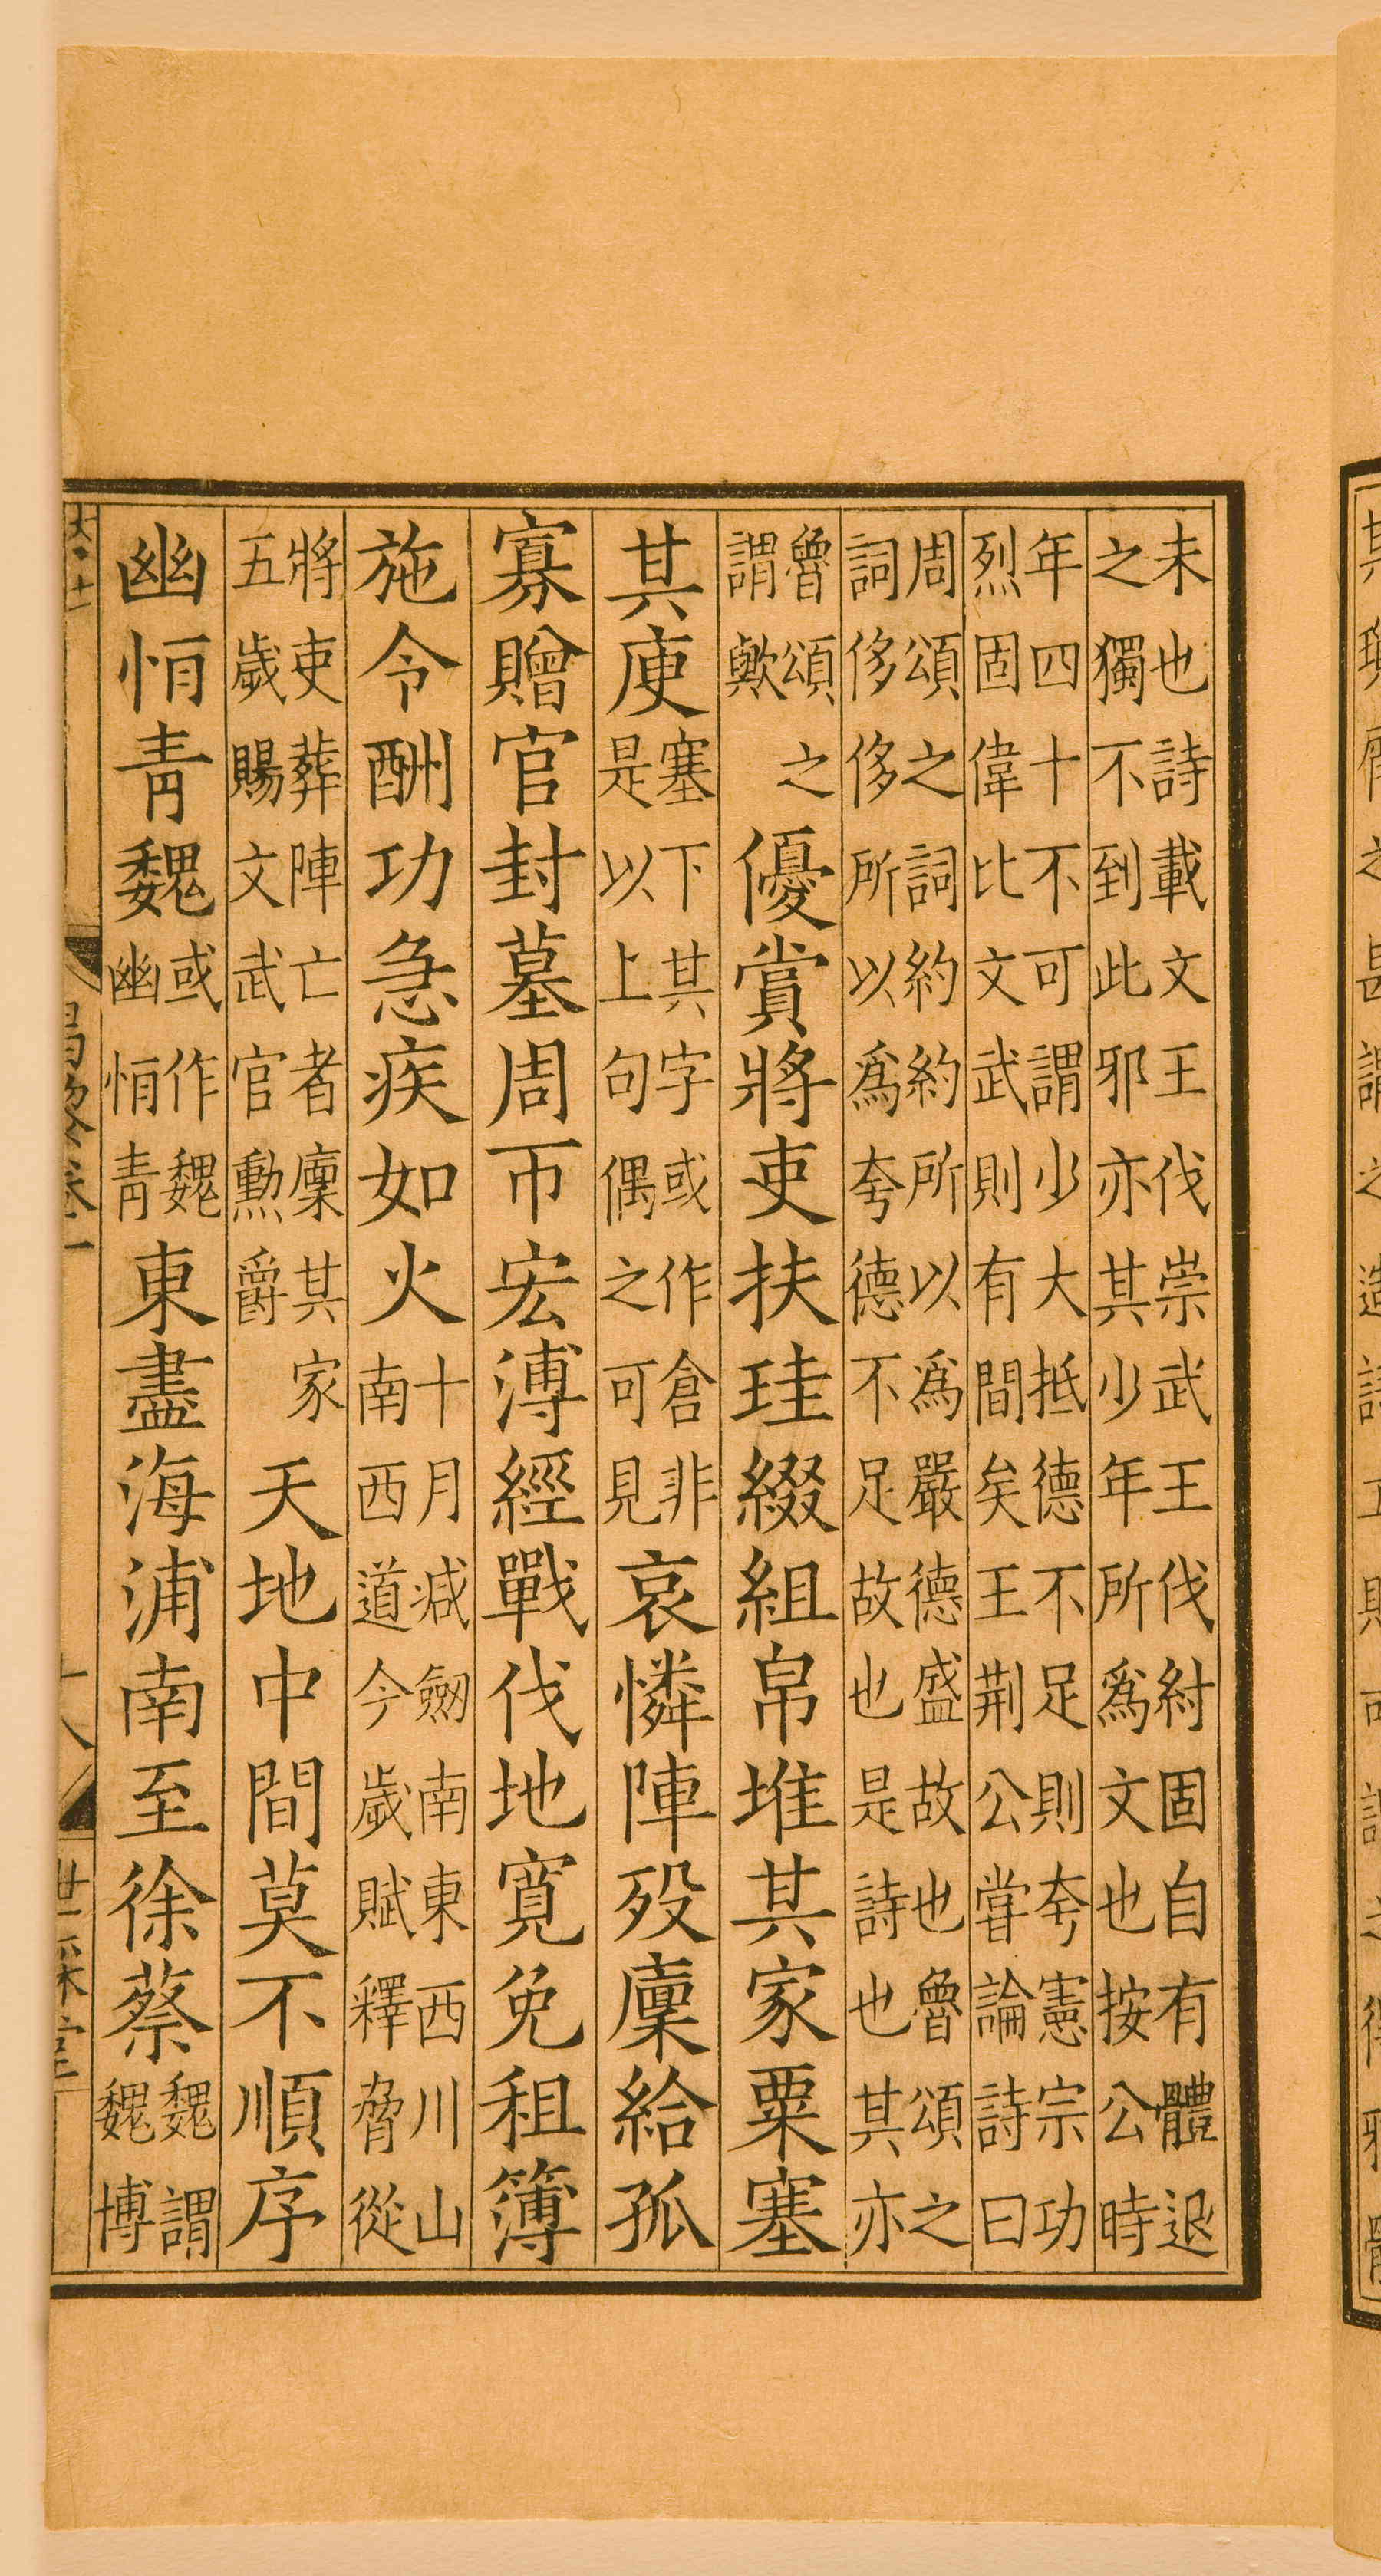 未也詩載文王伐崇武王伐紂固自有體退
之獨不到此邪亦其少年所爲文也按公時
年四十不可謂少大抵德不足則夸憲宗功
烈固偉比文武則有間矣王荆公嘗論詩曰
周頌之詞約約所以爲嚴德盛故也魯頌之
詞侈侈所以爲夸德不足故也是詩也其亦
魯頌之
謂歟
優賞將吏扶珪綴組帛堆其家粟塞
其庾
塞下其字或作倉非
是以上句偶之可見
哀憐陣歿廩給孤
寡贈官封墓周帀宏溥經戰伐地寬免租簿
施令酬功急疾如火
十月減劔南東西川山
南西道今歲賦釋脅從
將吏葬陣亡者廩其家
五歲賜文武官勳爵
天地中間莫不順序
幽恒青魏
或作魏
幽恒青
東盡海浦南至徐蔡
魏謂
魏博